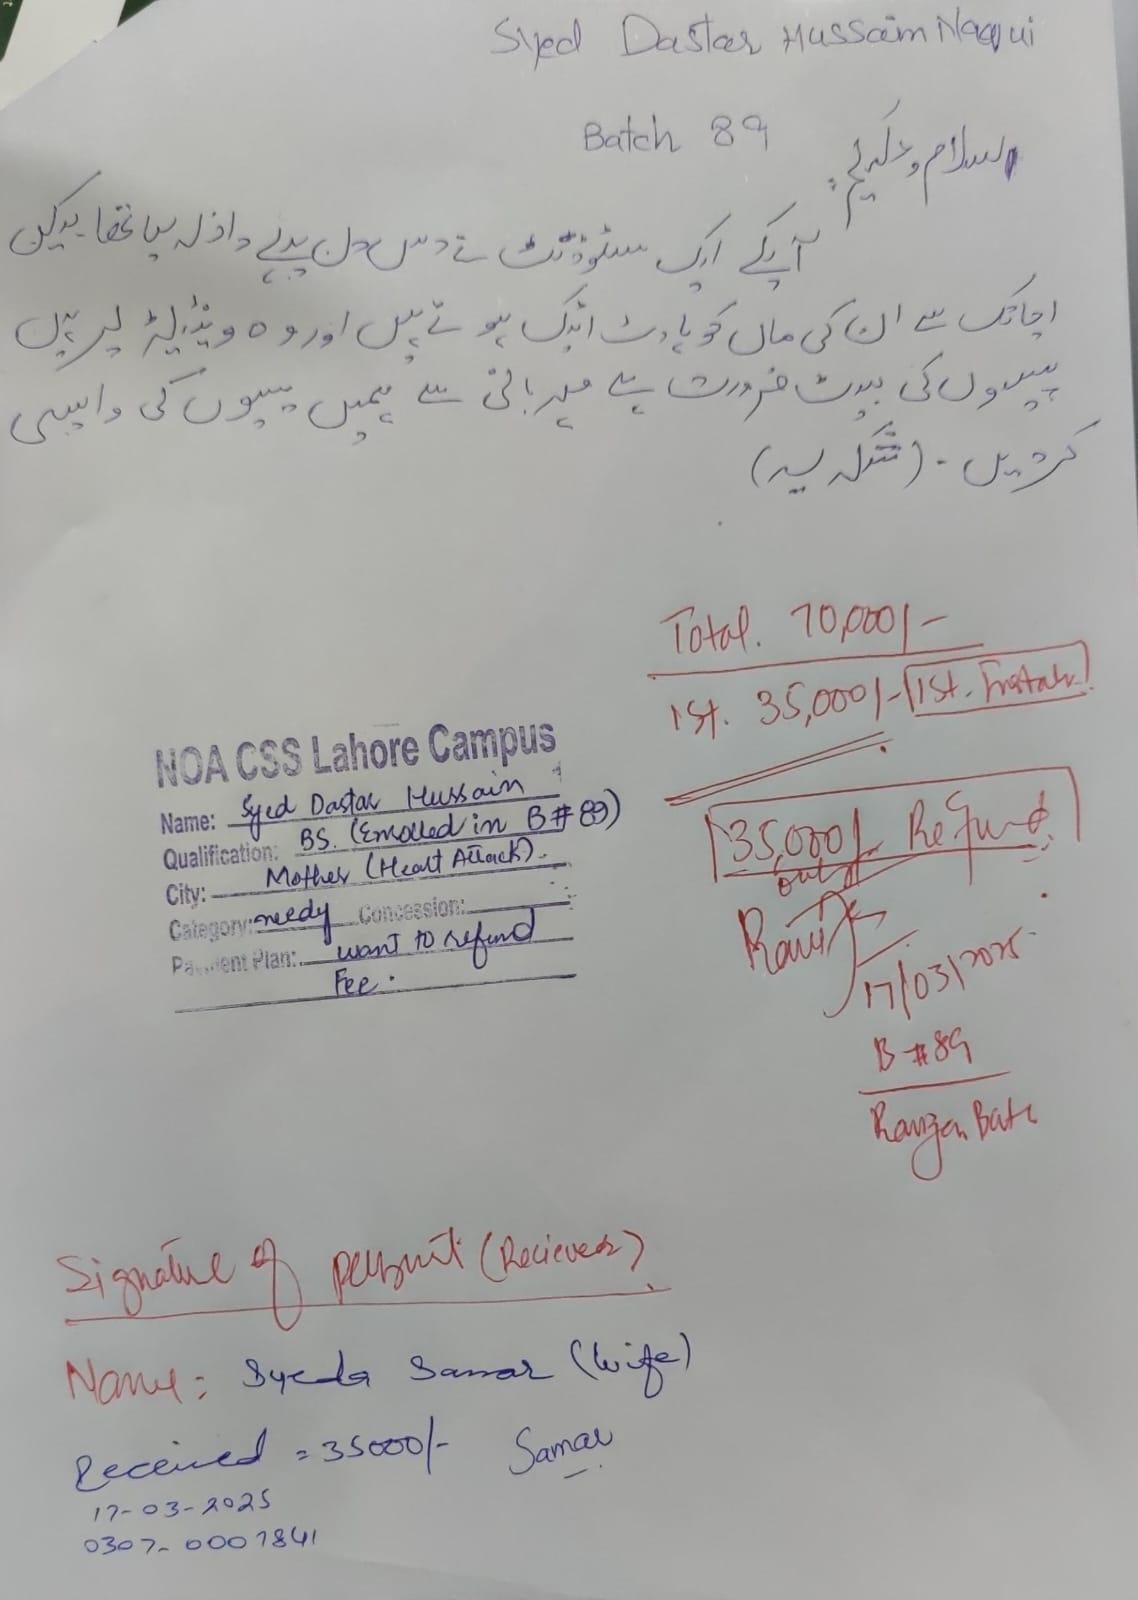 Syed Dastar Hussain Naqvi
Batch 89
اسلام وعلیکم
آپکے ایک سٹوڈنٹ نے دس دن پہلے داخلہ لیا تھا۔ لیکن
اچانک سے ان کی ماں کو ہارٹ اٹیک ہوئے ہیں اور وہ وینٹیلیٹر پر ہیں
پیسوں کی بہت ضرورت ہے مہربانی سے ہمیں پیسوں کی واپسی
کردیں - (شکریہ)
Total. 70,000/-
1st. 35,000/- 1st. Instalr.
35,000/- Refund
out of
17/03/2025
B #89
NOA CSS Lahore Campus
Name: Syed Dastar Hussain
Qualification: BS. (Enrolled in B# 89)
City: Mother (Heart Attack).
Category: needy Concession:
Payment Plan: want to refund
Fee.
Signature of (Reciever)
Name: Syeda Samar (wife)
Received = 35000/- Samar
17-03-2025
0307-0007841